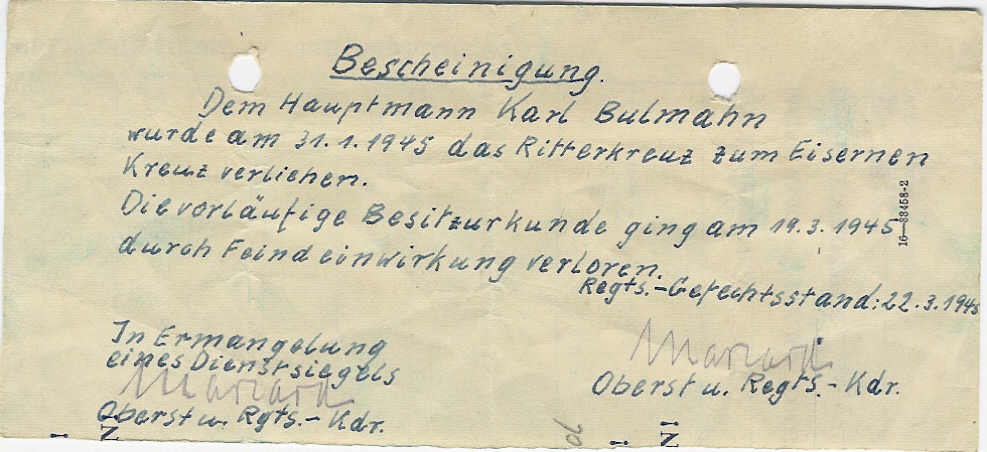 Bescheinigung.
Dem Hauptmann Karl Bulmahn
wurde am 31.1.1945 das Ritterkreuz zum Eisernen
Kreuz verliehen.
Die vorläufige Besitzurkunde ging am 19.3.1945
durch Feindeinwirkung verloren.
Regts.-Gefechtsstand: 22.3.1945
16—88458-2
In Ermangelung
eines Dienstsiegels
Oberst u. Rgts.- Kdr.
Oberst u. Regts.- Kdr.